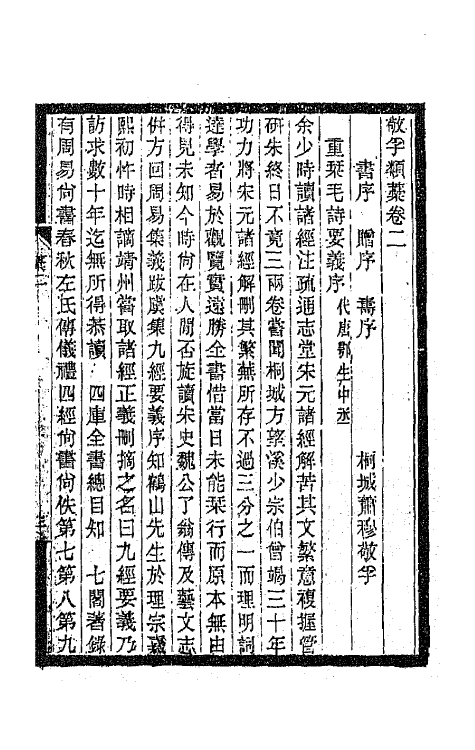 敬孚類藁卷二
書序　贈序　壽序　桐城蕭穆敬孚
重栞毛詩要義序　代唐鄂生中丞
余少時讀諸經注疏通志堂宋元諸經解苦其文繁意複握管
研朱終日不竟三兩卷嘗聞桐城方望溪少宗伯曾竭三十年
功力將宋元諸經解刪其繁蕪所存不過三分之一而理明詞
達學者易於觀覽實遠勝全書惜當日未能栞行而原本無由
得見未知今時尙在人閒否旋讀宋史魏公了翁傳及藝文志
併方回周易集義跋虞集九經要義序知鶴山先生於理宗嘉
熙初忤時相謫靖州當取諸經正義刪摘之名曰九經要義乃
訪求數十年迄無所得恭讀　四庫全書總目知　七閣著錄
有周易尙書春秋左氏傳儀禮四經尙書尙佚第七第八第九